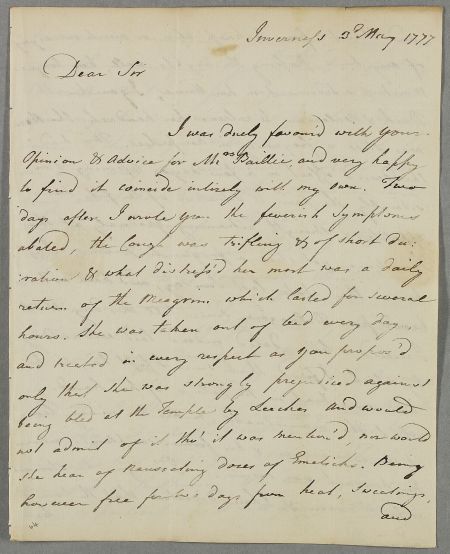 Inverness 3d May 1777
Dear Sir
I was duely favour'd with your
Opinion & Advice for Mrs Baillie, and very happy
to find it coincide intirely with my own. Two
days after I wrote you the feverish Symptoms
abated, the Cough was trifling & of short du-
ration & what distress'd her most was a daily
return of the Meagrim which lasted for several
hours. She was taken out of bed every day
and treated in every respect as you propos'd
only that she was strongly prejudiced against
being bled at the Temple by Leeches and would
not admit of it tho' it was mention'd, nor would
she hear of Nauseating doses of Emeticks. Being
however free for two days from heat, Sweatings,
and